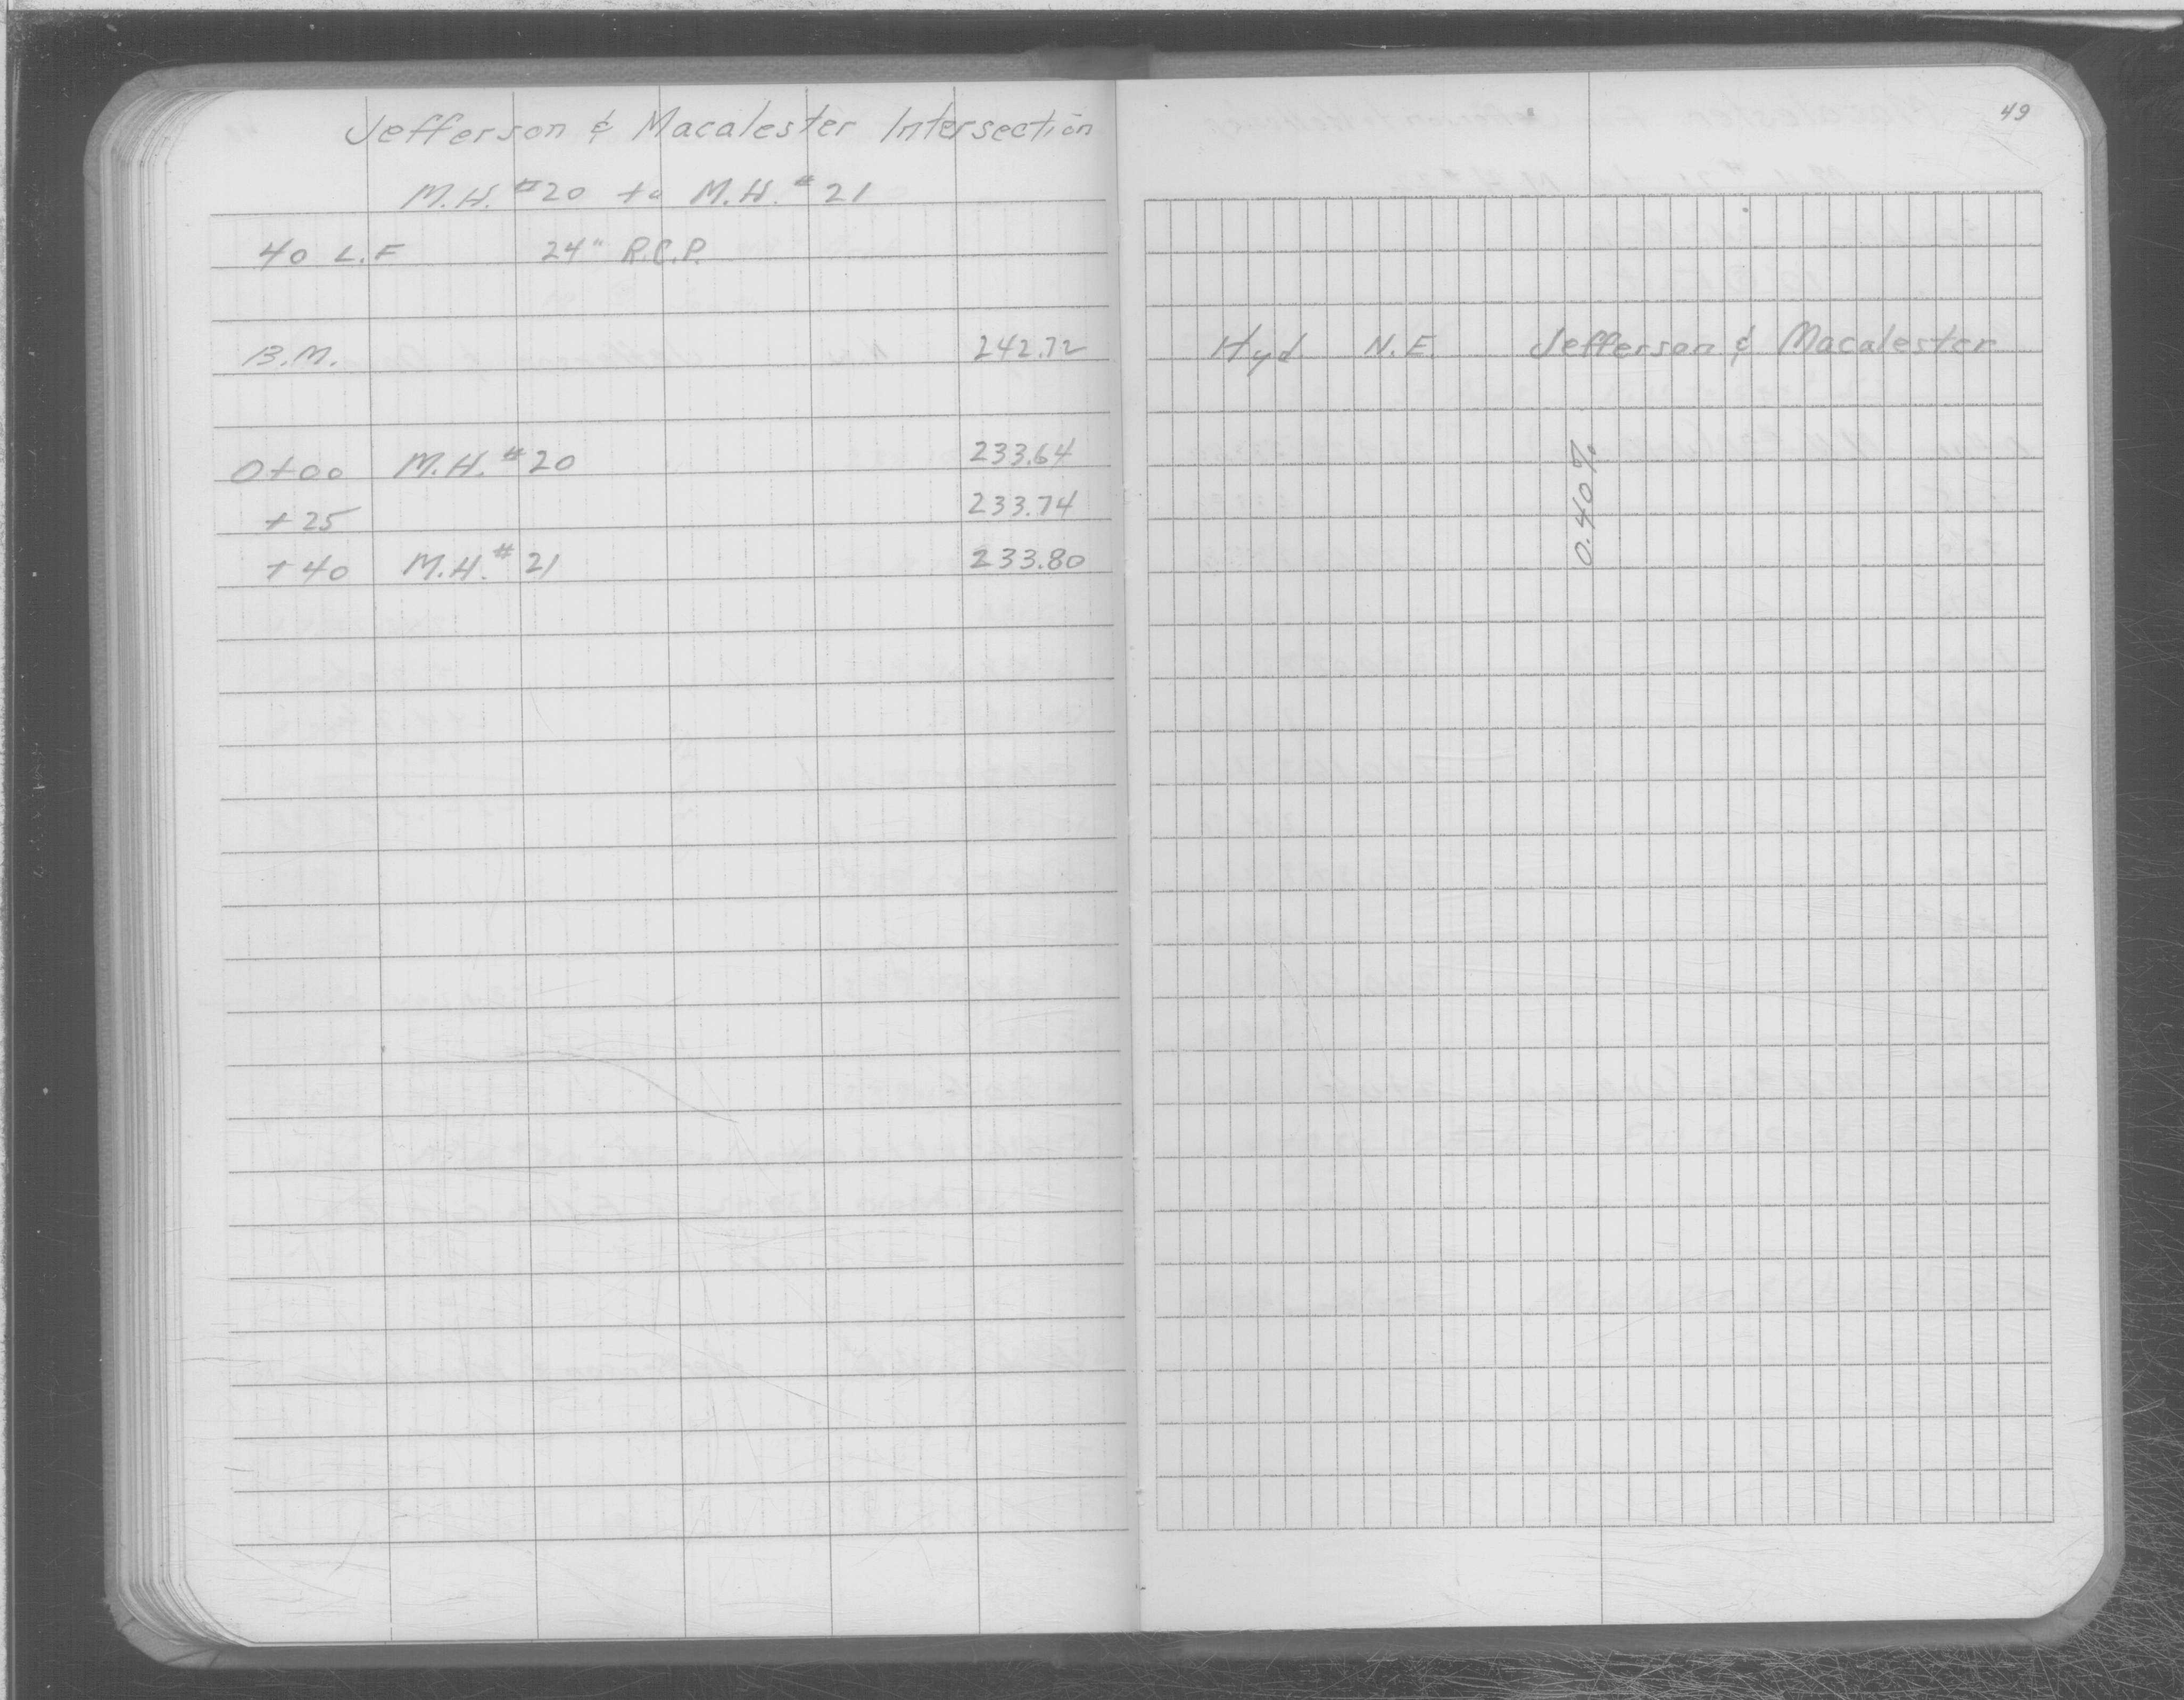 Jefferson & Macalester Intersection
M.H. #20 to M.H. #21
40 L.F 24" R.C.P.
B.M. 242.72
0+00 M.H. #20 233.64
+25 233.74
+40 M.H. #21 233.80
49
Hyd. N.E. Jefferson & Macalester
0.40%